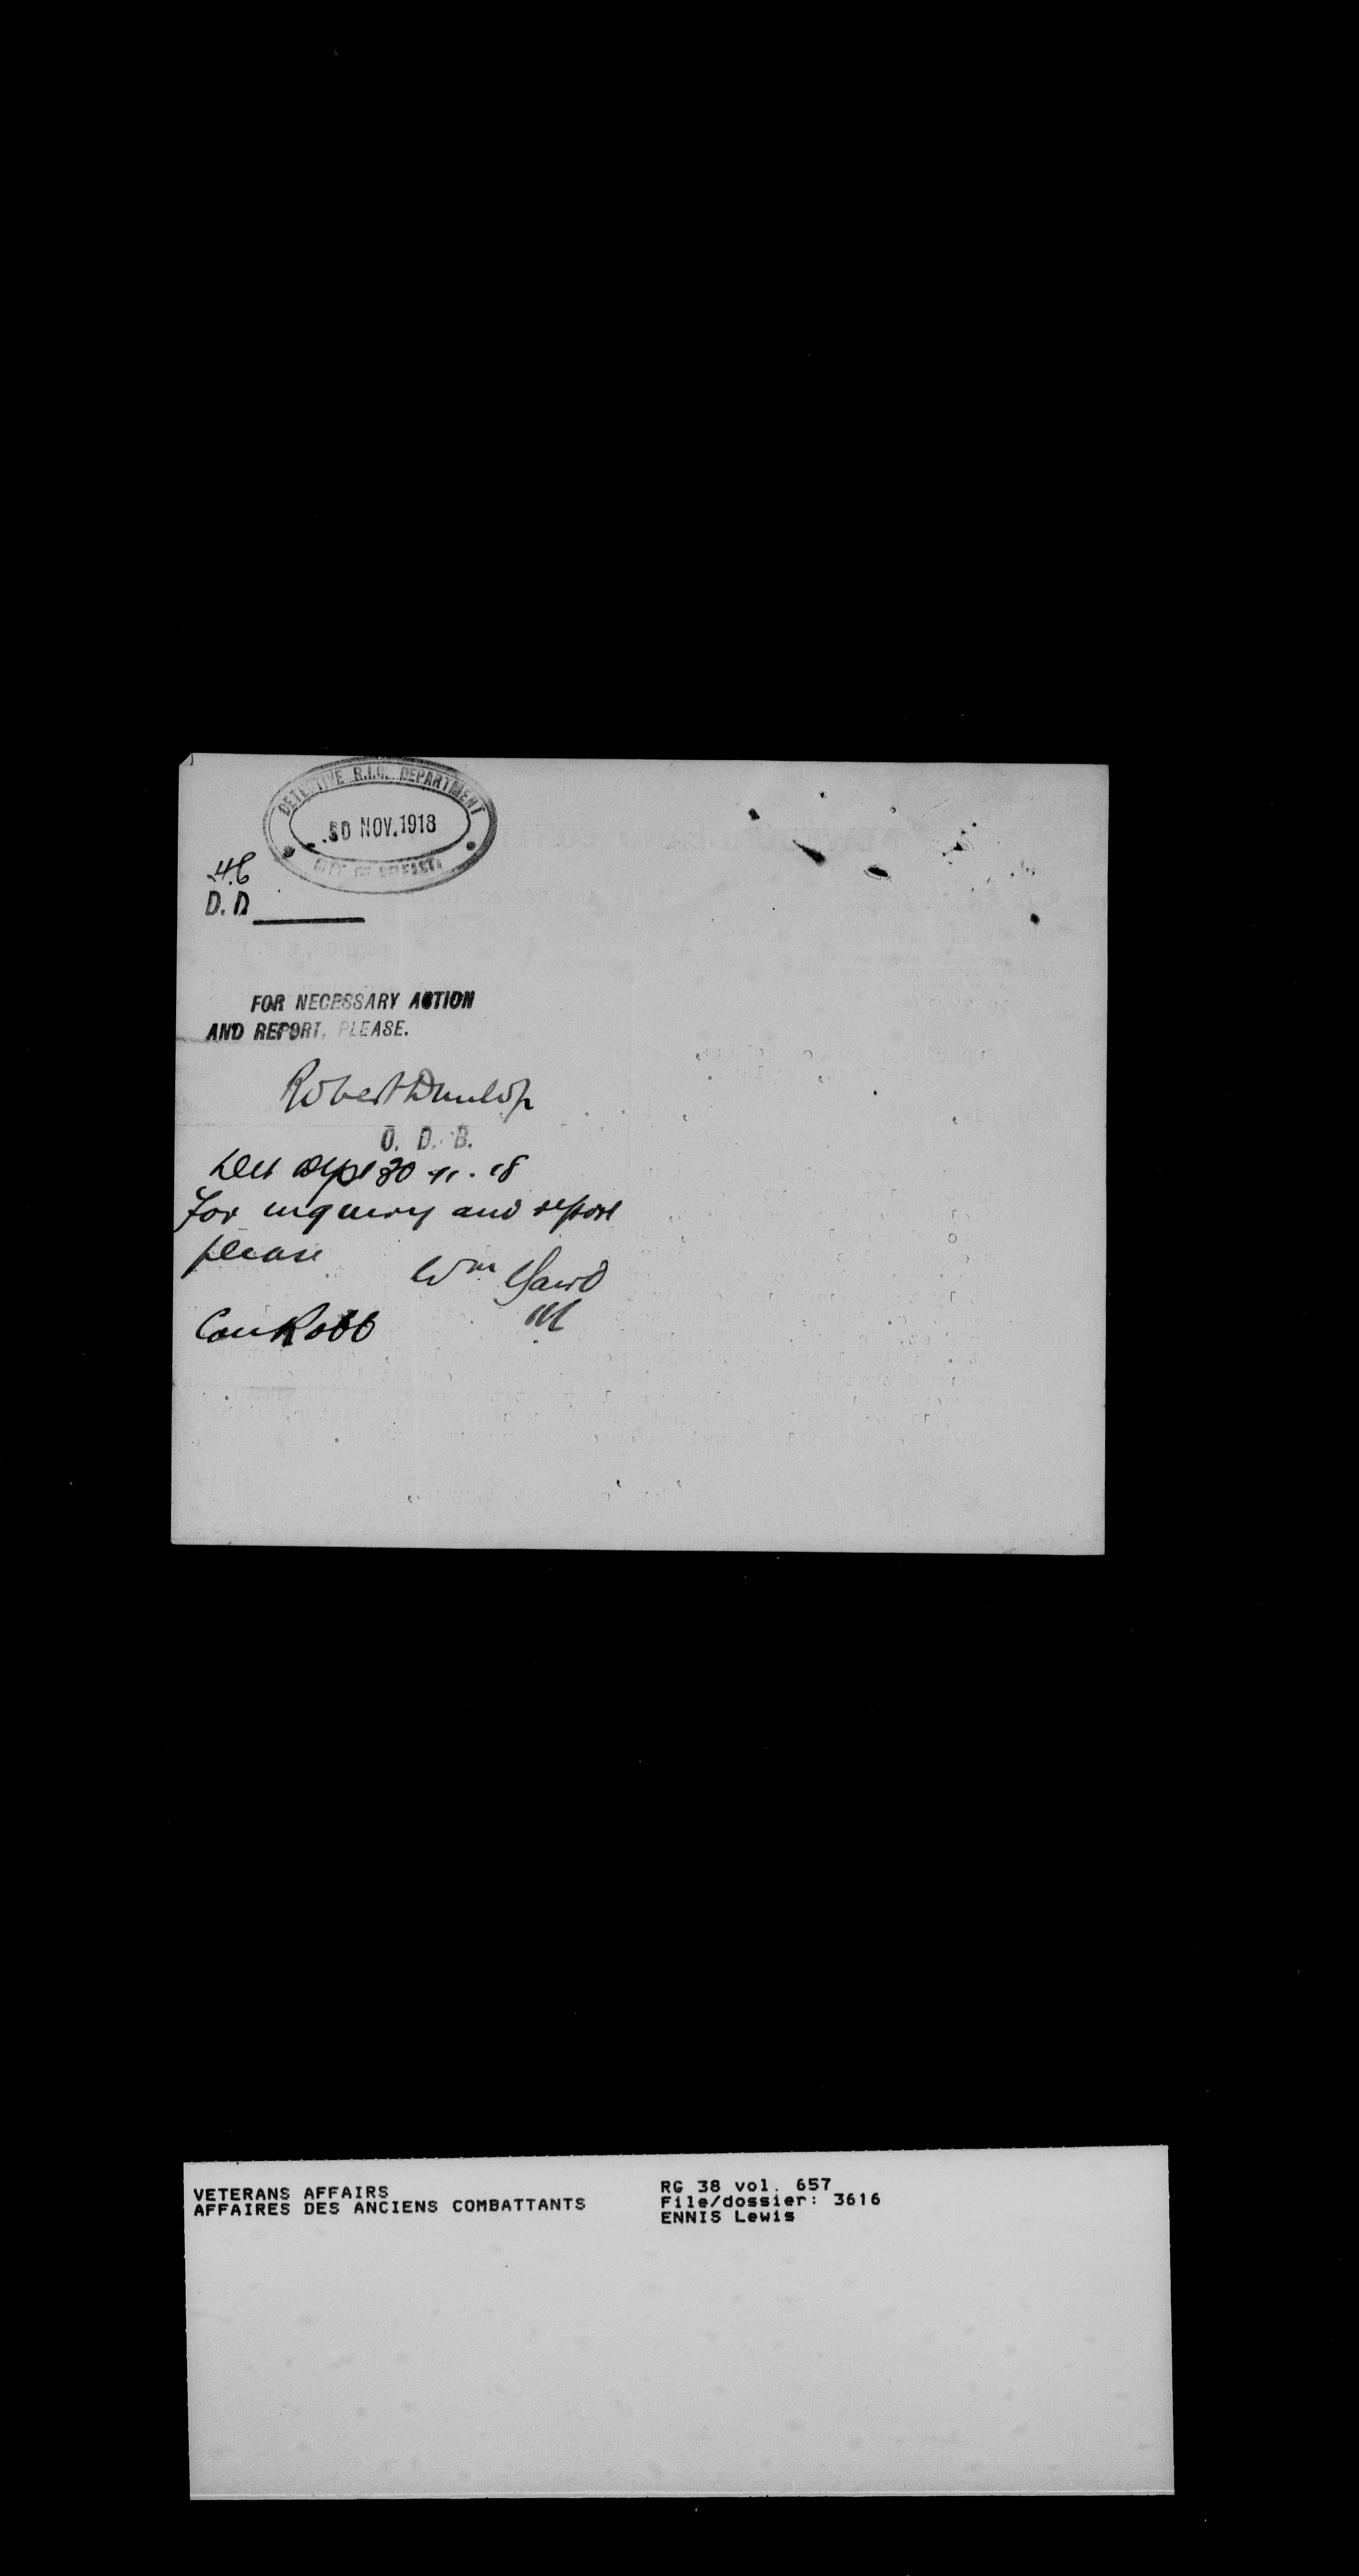 DETECTIVE R.I.C. DEPARTMENT
30 NOV. 1918
CITY OF BELFAST
D.D
FOR NECESSARY ACTION
AND REPORT, PLEASE.
Robert Dunlop
D. B.
Det Dept 30-11-18
For inquiry and report
please
Wm
Con Robb
VETERANS AFFAIRS
AFFAIRES DES ANCIENS COMBATTANTS
RG 38 vol. 657
File/dossier: 3616
ENNIS Lewis